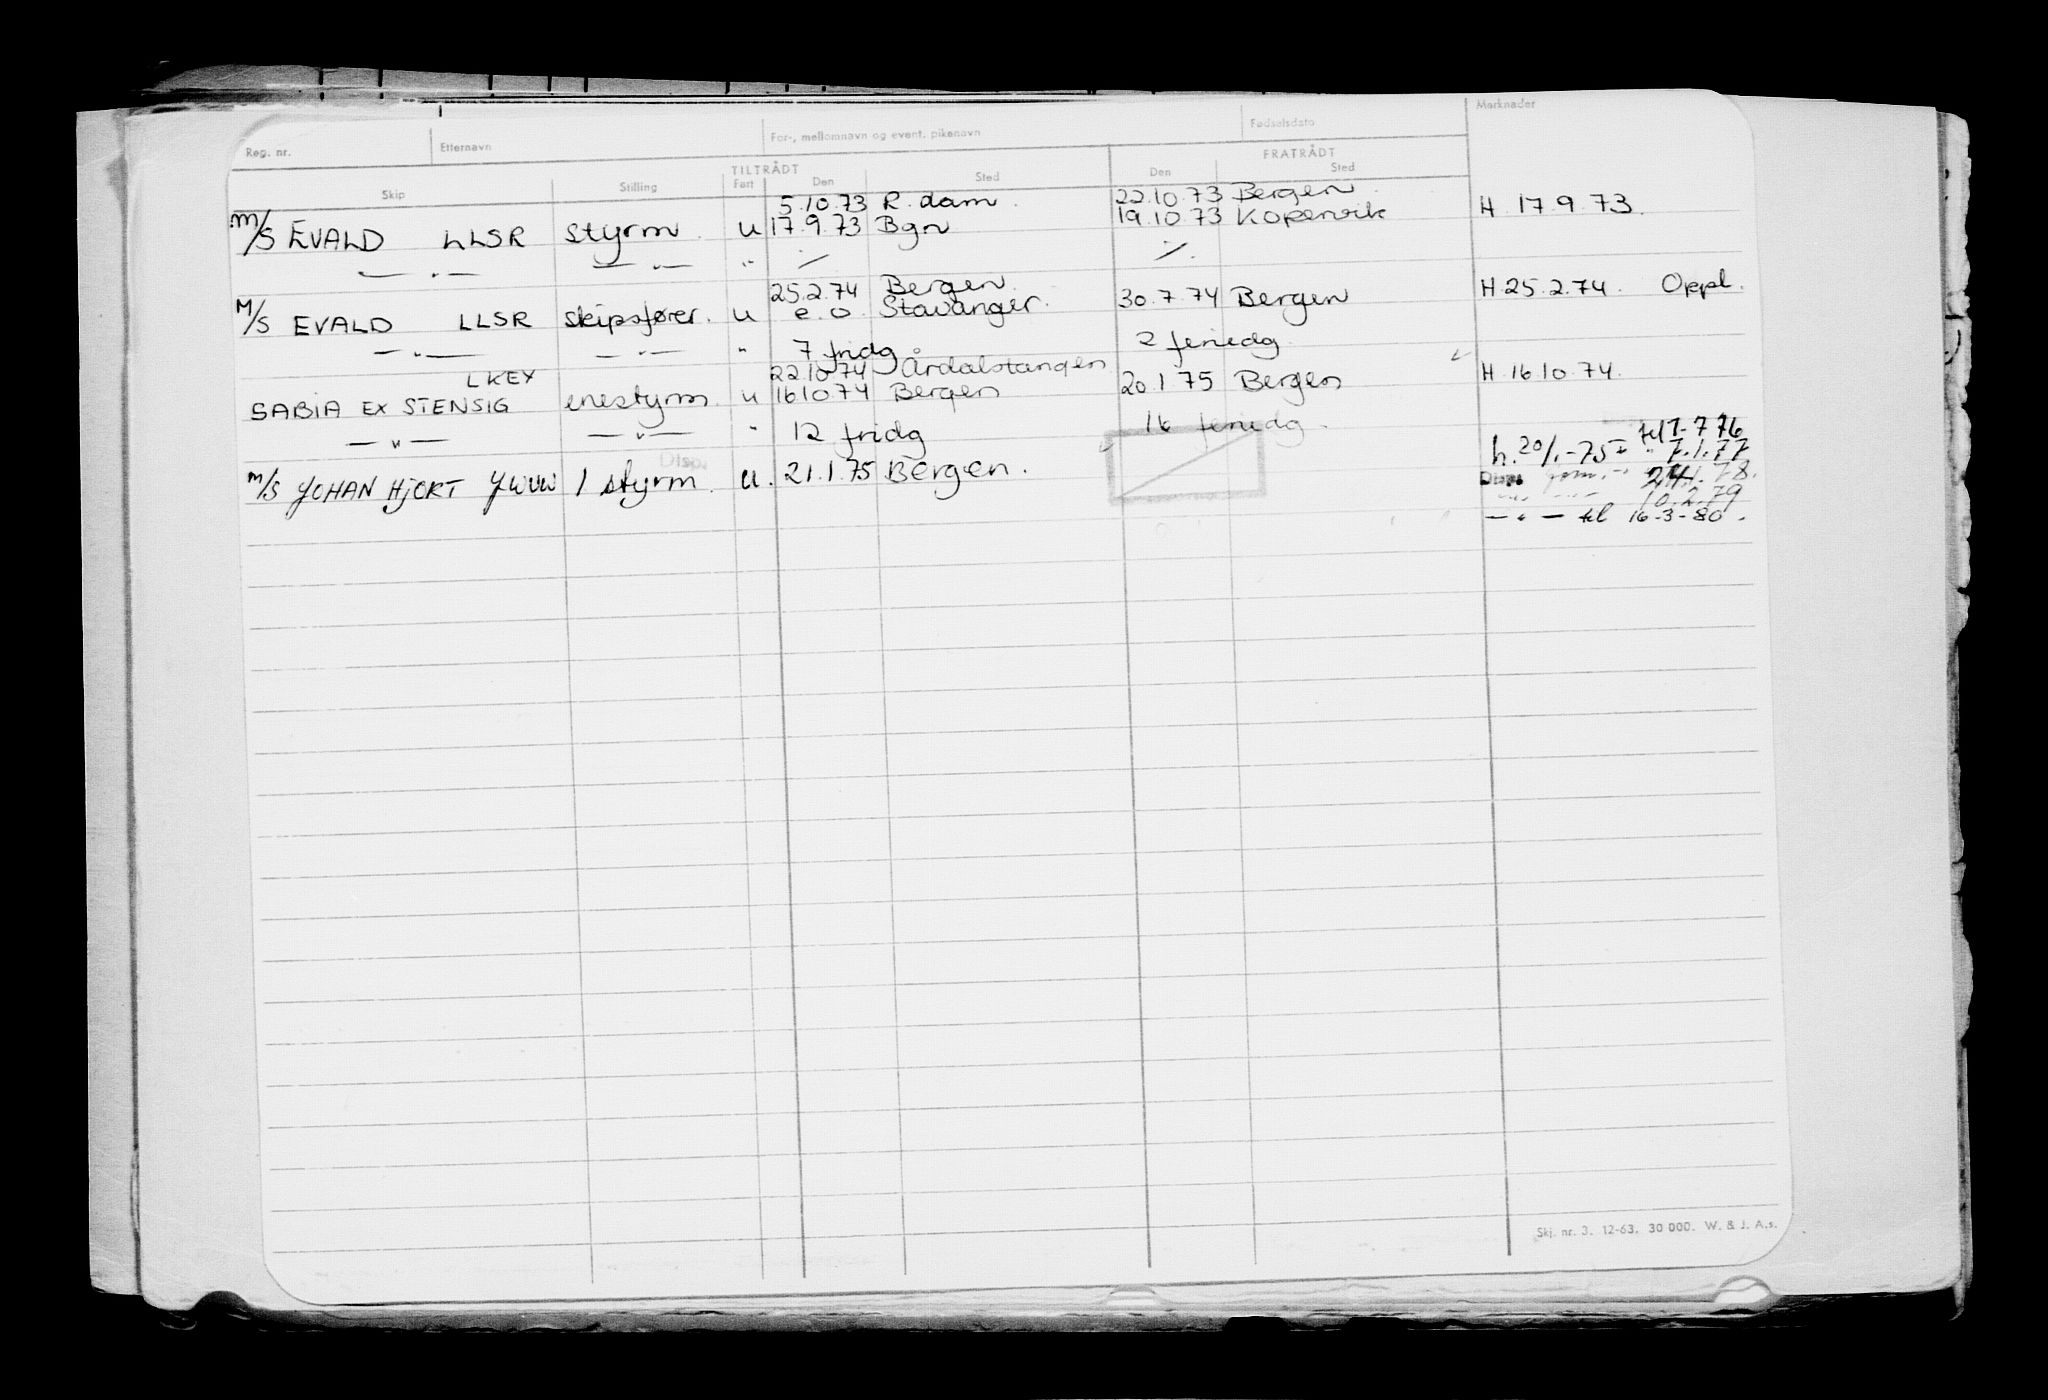 Reg. nr. Etternavn For-, mellomnavn og event. pikenavn Fødselsdato Merknader
TILTRÅDT FRATRÅDT
Skip Stilling Fart Den Sted Den Sted
5.10.73 R.dam. 22.10.73 Bergen.
M/S EVALD LLSR styrm. u 17.9.73 Bgn 19.10.73 Kopervik H. 17.9.73.
— " — — " — " ⁒ ⁒.
25.2.74 Bergen.
M/S EVALD LLSR skipsfører. u e.o. Stavanger. 30.7.74 Bergen H.25.2.74. Oppl.
— " — — " — " 7 fridg 2 feriedg.
LKEX 22.10.74 Årdalstangen
SABIA EX STENSIG enestyrm. u 16.10.74 Bergen 20.1.75 Bergen H.16.10.74.
— " — — " — " 12 fridg 16 feriedg.
Disp.
m/s JOHAN HJORT JWUW 1 styrm. u. 21.1.75 Bergen. h. 20/1.-75
7.1.77
Disp.
10.2.79
— " — til 16-3-80.
Skj. nr. 3. 12-63. 30 000. W. & J. A.s.